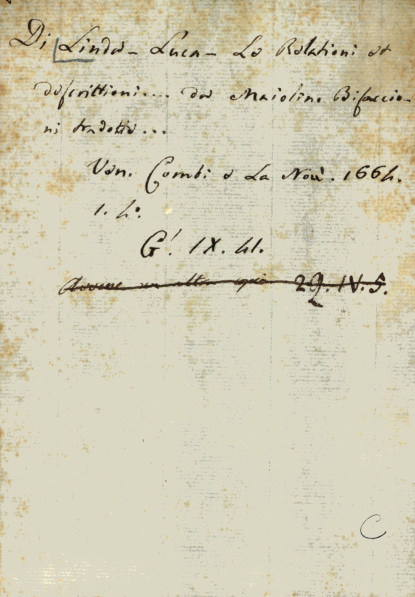 Di Linda - Luca - Le Relationi et
descrittioni.... da Maiolino Bisaccio-
ni tradotte...
Ven. Combi e La Noù. 1664.
1. 4º.
G'. IX. 41.
29. IV. 5.
C